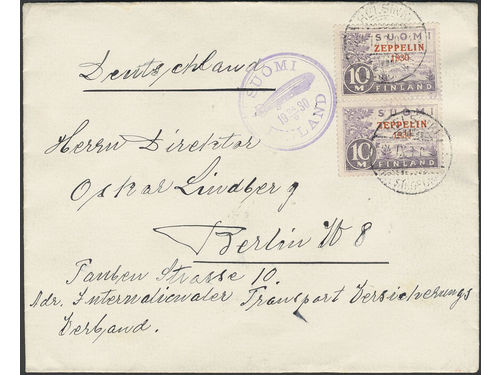 Deutschland
SUOMI
19 24/9 30
FINLAND
HELSINKI
SUOMI
ZEPPELIN
1930
10 M
FINLAND
SUOMI
ZEPPELIN
10 M
FINLAND
Herrn Direktor
Oskar Lindberg
Berlin W 8
Tauben Strasse 10
Adr. Internationaler Transport Versicherungs
Verband.